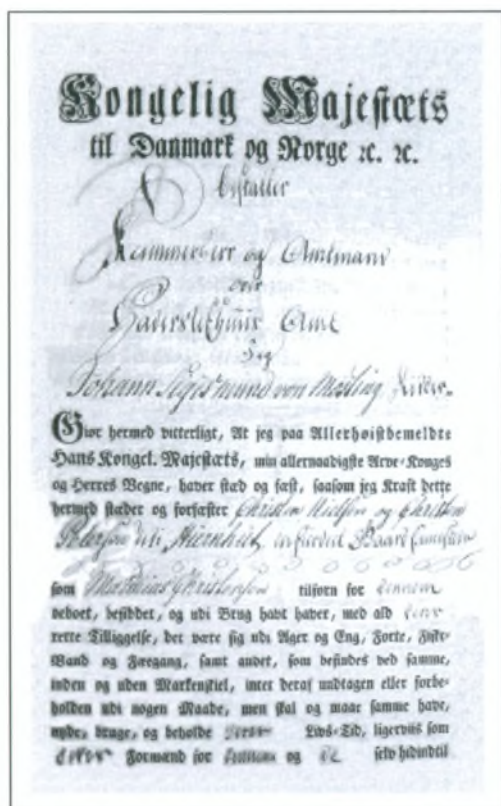 Kongelig Majestæts
til Danmark og Norge ꝛc. ꝛc.
bestalter
Kammerherr og Amtmand
over
Haderslefhuus Amt
Jeg
Johann Sigismund von Mösting Ridder.
Giør hermed vitterligt, At jeg paa Allerhøistbemeldte
Hans Kongel. Majestæts, min allernaadigste Arve-Konges
og Herres Vegne, haver stæd og fæst, saasom jeg Kraft dette
hermed stæder og forfæster Christen Nielsen og Christen
Petersen udi
som Matthias Christensen tilforn for dennem
beboet, besiddet, og udi Brug havt haver, med ald
rette Tilliggelse, det være sig udi Ager og Eng, Forte, Fiske-
Vand og Fæegang, samt andet, som befindes ved samme,
inden og uden Markeskiel, intet deraf undtagen eller forbe-
holden udi nogen Maade, men skal og maar samme have,
nyde, bruge, og beholde Livs-Tid, ligerviis som
Formænd for dennem og selv hidindtil